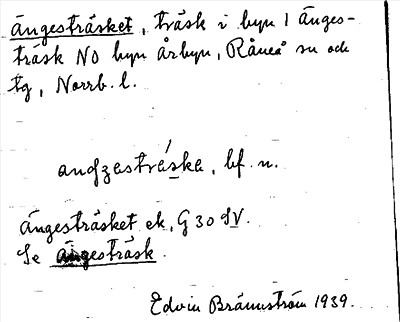 Ängesträsket, träsk i byn 1 Änges-
träsk NO byn Årbyn, Råneå sn och
tg, Norrb. l.
bf. n.
Ängesträsket ek. G 30 SV.
Se Ängesträsk.
Edvin Brännström 1939.